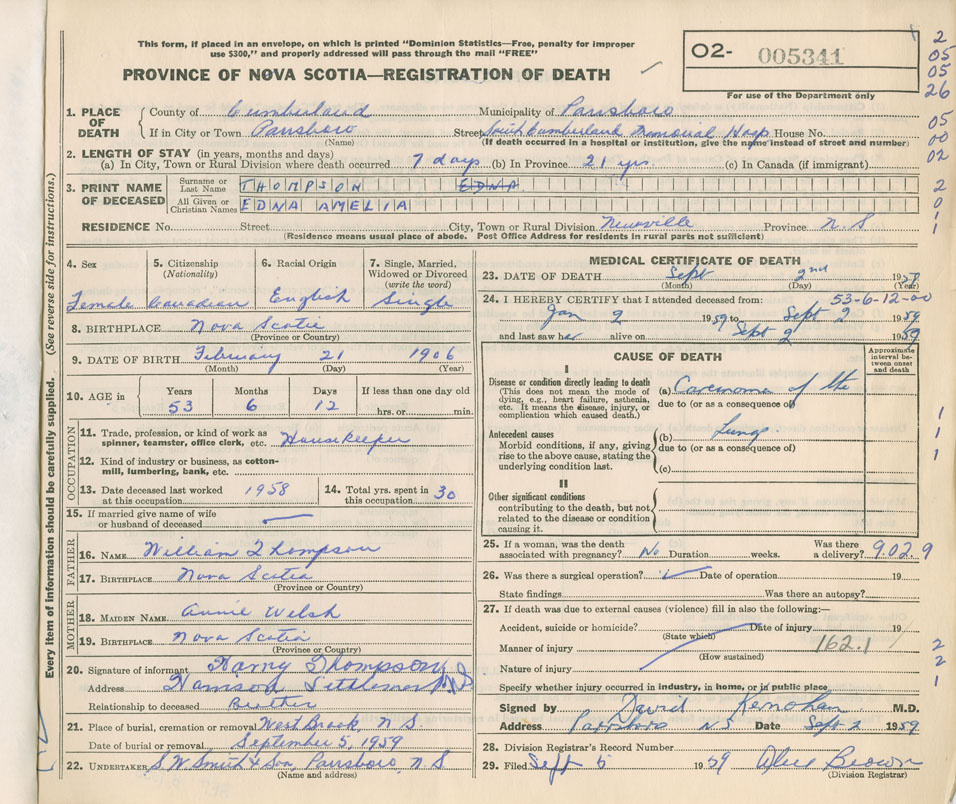 This form, if placed in an envelope, on which is printed "Dominion Statistics—Free, penalty for improper
use $300," and properly addressed will pass through the mail "FREE"
PROVINCE OF NOVA SCOTIA—REGISTRATION OF DEATH
O2- 005341
For use of the Department only
2
05
05
26
05
00
02
2
0
1
1. PLACE OF DEATH
County of Cumberland Municipality of Parrsboro
If in City or Town Parrsboro Street South Cumberland Memorial Hosp House No.
(Name) (If death occurred in a hospital or institution, give the name instead of street and number)
2. LENGTH OF STAY (in years, months and days)
(a) In City, Town or Rural Division where death occurred 7 days (b) In Province 21 yrs. (c) In Canada (if immigrant)
3. PRINT NAME OF DECEASED
Surname or Last Name THOMPSON EDNA
All Given or Christian Names EDNA AMELIA
RESIDENCE No. Street City, Town or Rural Division Newville Province N.S
(Residence means usual place of abode. Post Office Address for residents in rural parts not sufficient)
Every item of information should be carefully supplied. (See reverse side for instructions.)
4. Sex 5. Citizenship (Nationality) 6. Racial Origin 7. Single, Married, Widowed or Divorced (write the word)
Female Canadian English Single
8. BIRTHPLACE Nova Scotia
(Province or Country)
9. DATE OF BIRTH February 21 1906
(Month) (Day) (Year)
10. AGE in Years Months Days If less than one day old
53 6 12 hrs. or min.
OCCUPATION
11. Trade, profession, or kind of work as spinner, teamster, office clerk, etc. Housekeeper
12. Kind of industry or business, as cotton-mill, lumbering, bank, etc.
13. Date deceased last worked at this occupation 1958 14. Total yrs. spent in this occupation 30
15. If married give name of wife or husband of deceased
FATHER
16. NAME William Thompson
17. BIRTHPLACE Nova Scotia
(Province or Country)
MOTHER
18. MAIDEN NAME Annie Welsh
19. BIRTHPLACE Nova Scotia
(Province or Country)
20. Signature of informant Harry Thompson
Address Harrison Settlement N.S
Relationship to deceased Brother
21. Place of burial, cremation or removal West Brook, N S
Date of burial or removal September 5, 1959
22. UNDERTAKER S. W Smith & Son, Parrsboro, N. S
(Name and address)
MEDICAL CERTIFICATE OF DEATH
23. DATE OF DEATH Sept 2nd 1959
(Month) (Day) (Year)
24. I HEREBY CERTIFY that I attended deceased from: 53-6-12-00
Jan 2 1959 to Sept 2 1959
and last saw her alive on Sept 2 1959
CAUSE OF DEATH
Approximate interval between onset and death
I
Disease or condition directly leading to death
(This does not mean the mode of dying, e.g., heart failure, asthenia, etc. It means the disease, injury, or complication which caused death.)
(a) Carcinoma of the
due to (or as a consequence of)
Antecedent causes
Morbid conditions, if any, giving rise to the above cause, stating the underlying condition last.
(b) Lungs
due to (or as a consequence of)
(c)
1
1
1
II
Other significant conditions
contributing to the death, but not related to the disease or condition causing it.
25. If a woman, was the death associated with pregnancy? No Duration weeks. Was there a delivery? 9.02.9
26. Was there a surgical operation? Date of operation 19
State findings Was there an autopsy?
27. If death was due to external causes (violence) fill in also the following:—
Accident, suicide or homicide? Date of injury 19
(State which)
Manner of injury 162.1
(How sustained)
Nature of injury
2
2
1
Specify whether injury occurred in industry, in home, or in public place
Signed by David M.D.
Address Parrsboro N.S Date Sept 2 1959
28. Division Registrar's Record Number
29. Filed Sept 5 1959 Brown
(Division Registrar)